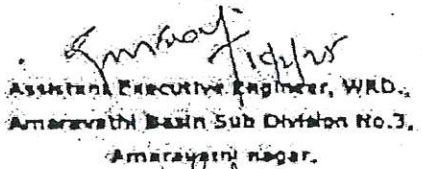 Assistant Executive Engineer, WRD.,
Amaravathi Basin Sub Division No.3,
Amaravathi nagar.